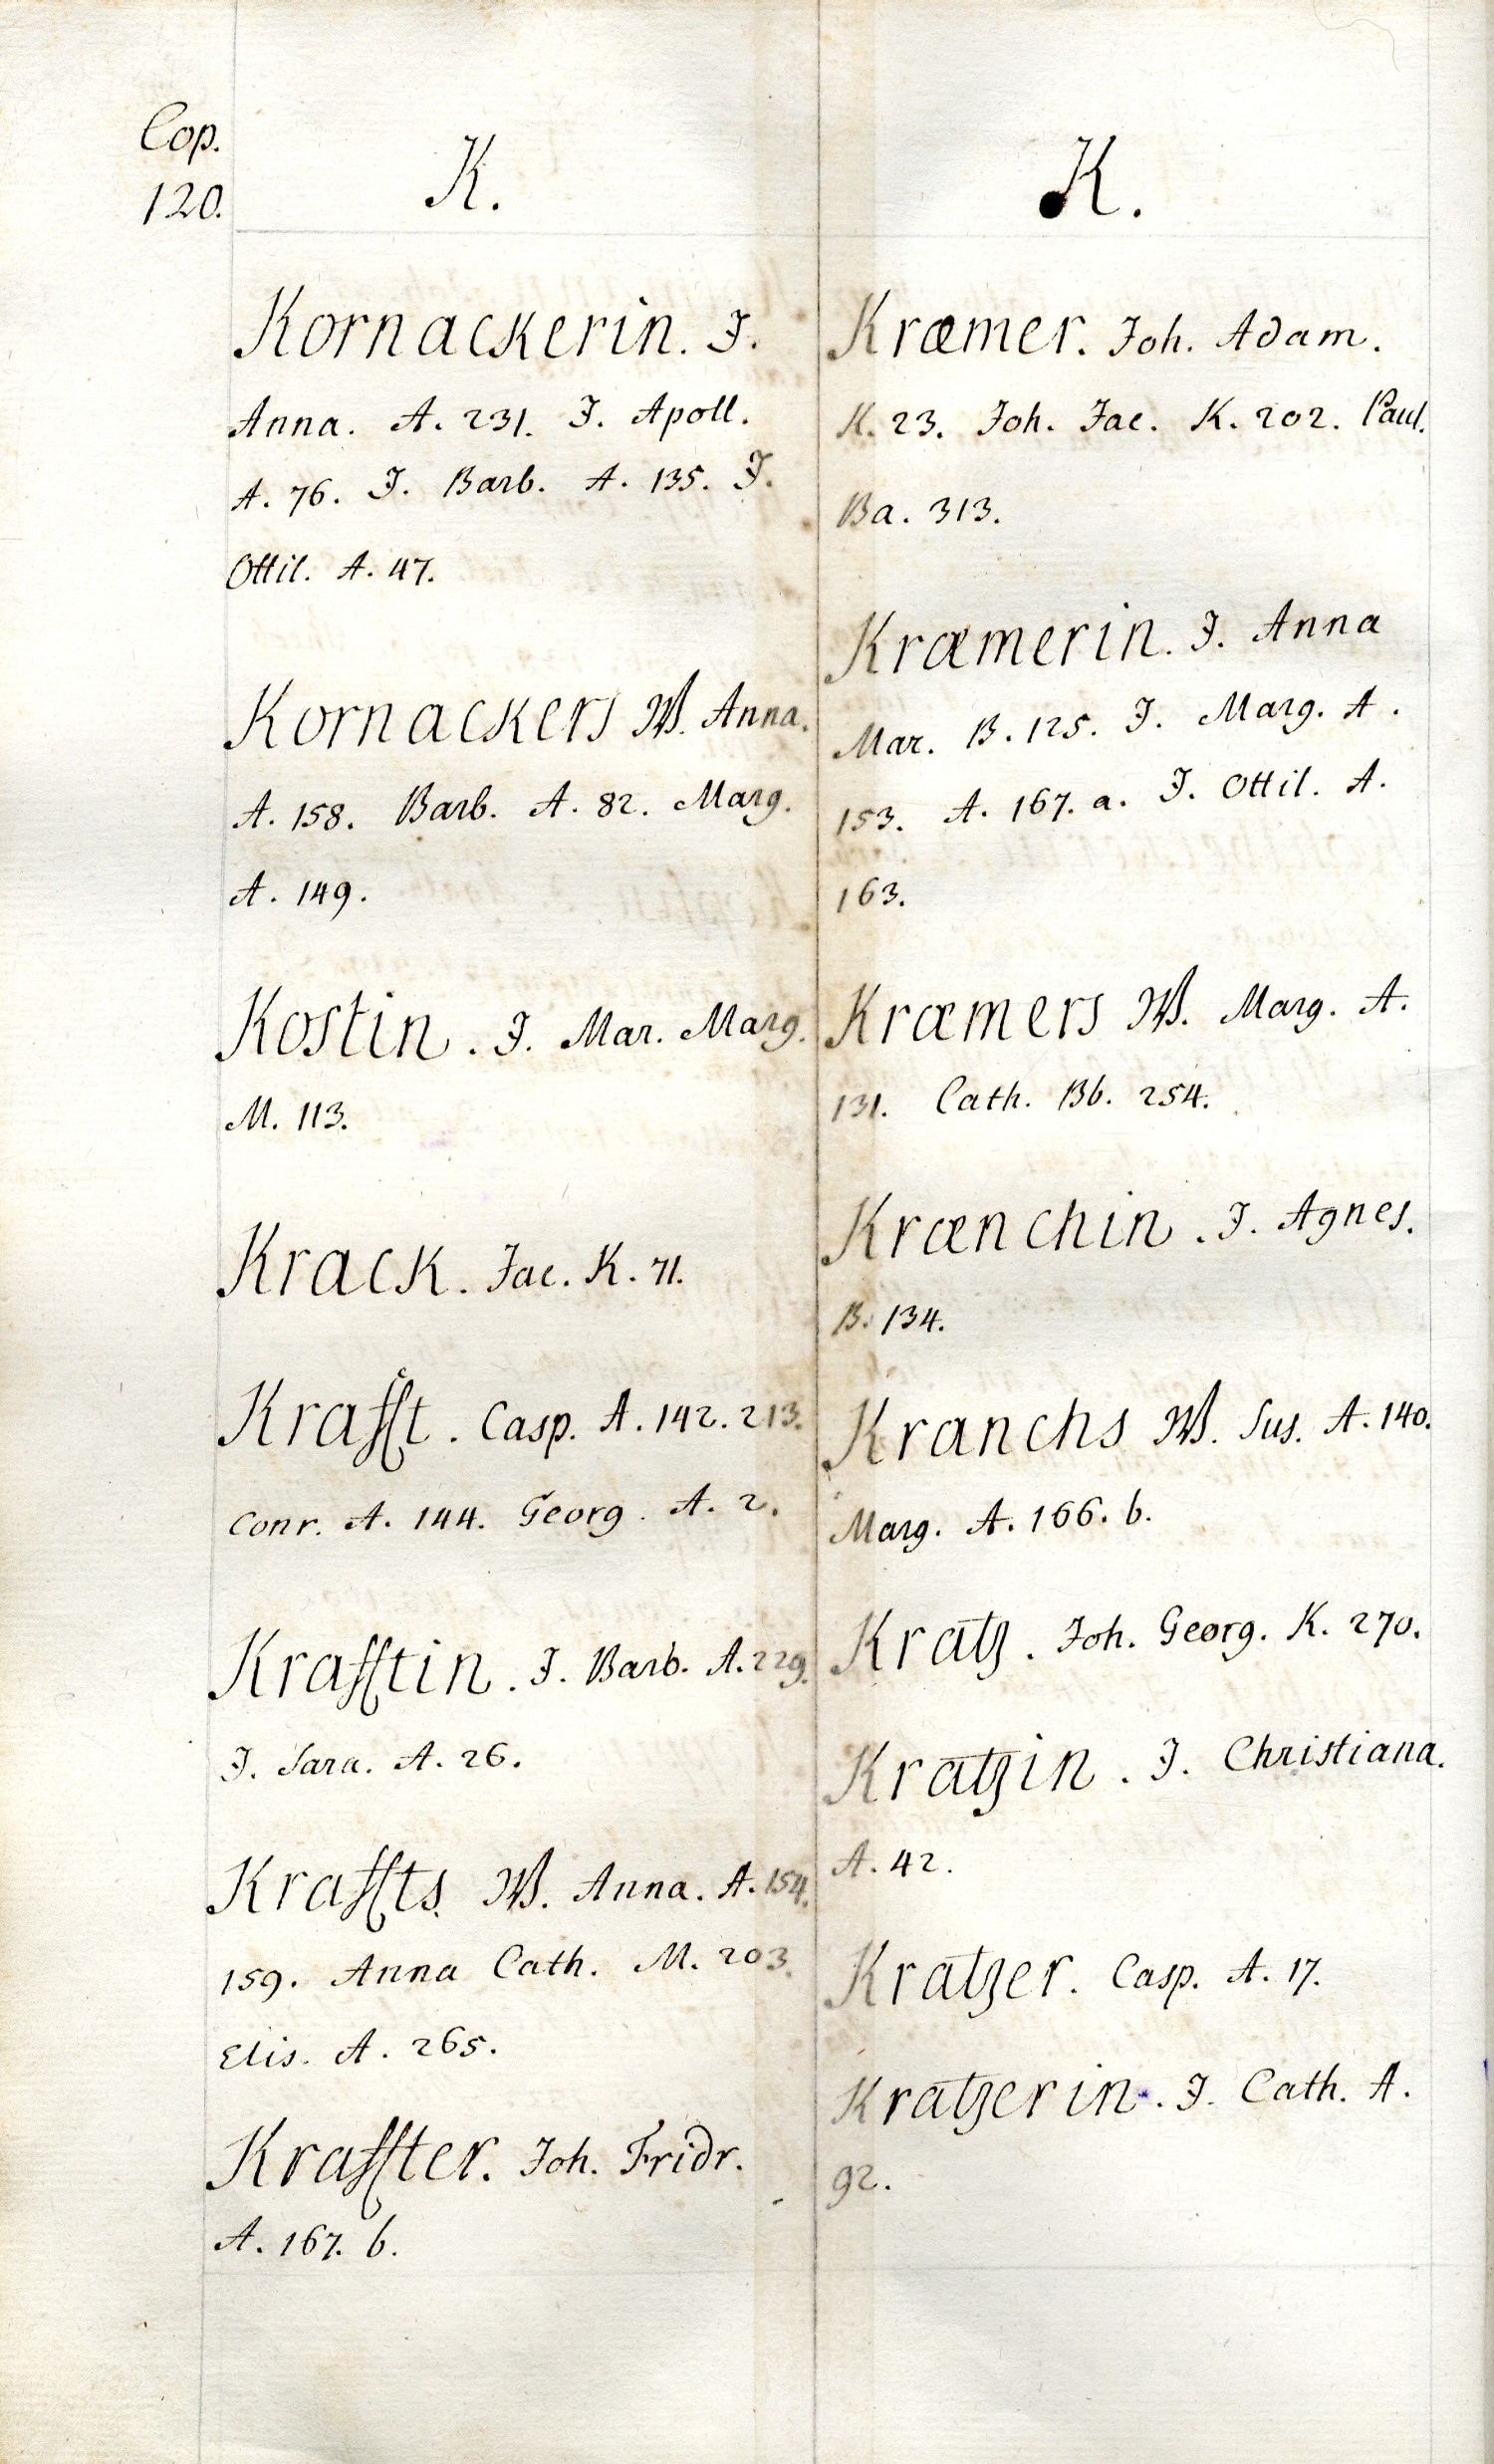 Cop.
120.
K.
Kornackerin. J.
Anna. A. 231. J. Apoll.
A. 76. J. Barb. A. 135. J.
Ottil. A. 47.
Kornackers W. Anna.
A. 158. Barb. A. 82. Marg.
A. 149.
Kostin. J. Mar. Marg.
M. 113.
Krack. Jac. K. 71.
Krafft. Casp. A. 142. 213.
Conr. A. 144. Georg. A. 2.
Krafftin. J. Barb. A. 229.
J. Sara. A. 26.
Kraffts. W. Anna. A. 154.
159. Anna Cath. M. 203.
Elis. A. 265.
Kraffter. Joh. Fridr.
A. 167. b.
K.
Kræmer. Joh. Adam.
K. 23. Joh. Jac. K. 202. Paul.
Ba. 313.
Kræmerin. J. Anna
Mar. B. 125. J. Marg. A.
153. A. 167. a. J. Ottil. A.
163.
Kræmers W. Marg. A.
131. Cath. Bb. 254.
Krænchin. J. Agnes.
B. 134.
Kranchs W. Sus. A. 140.
Marg. A. 166. b.
Kratz. Joh. Georg. K. 270.
Kratzin. J. Christiana.
A. 42.
Kratzer. Casp. A. 17.
Kratzerin. J. Cath. A.
92.